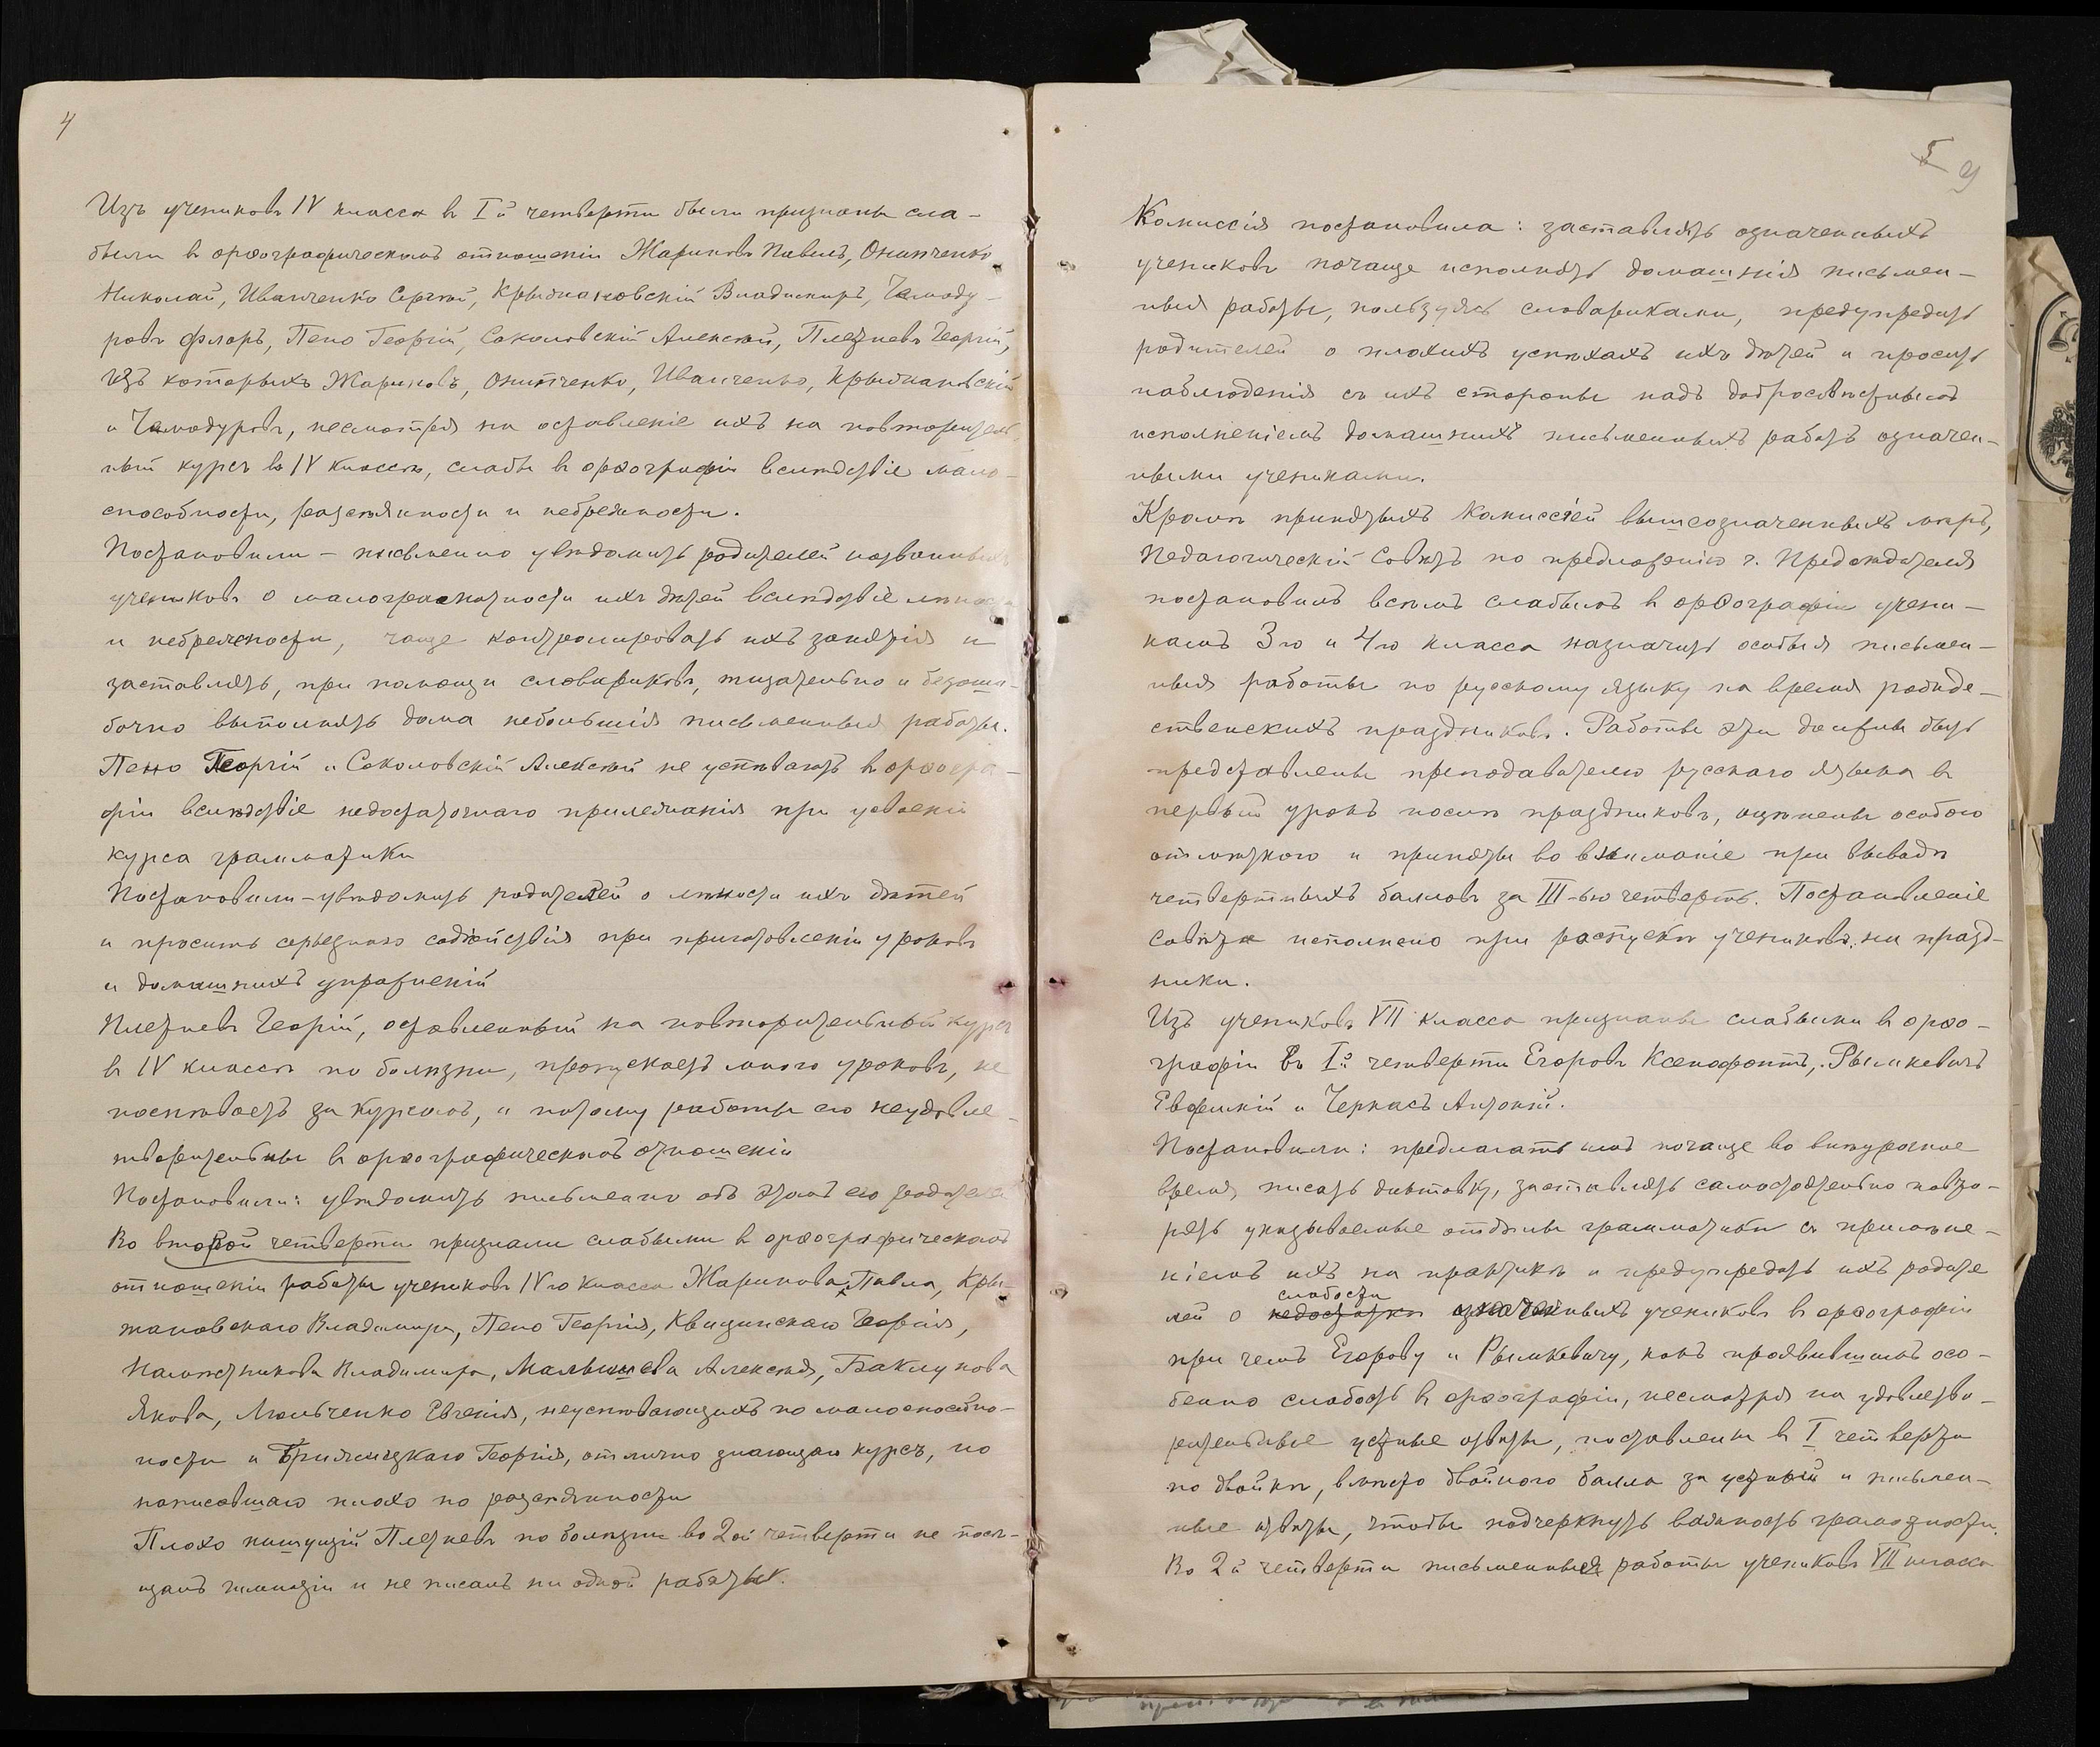 4
Изъ учениковъ IV класса въ I й четверти были признаны сла-
быми въ орѳографическомъ отношеніи Жариковъ Павелъ, Онипченко
Николай, Иванченко Сергѣй, Крыжановскій Владимиръ, Чемоду-
ровъ Флоръ, Пено Георгій, Соколовскій Алексѣй, Плетневъ Георгій,
изъ которыхъ Жариковъ, Онипченко, Иванченко, Крыжановскій
и Чемодуровъ, несмотря на оставленіе ихъ на повторитель
ный курсъ въ IV классѣ, слабы въ орѳографіи вслѣдствіе мало-
способности, разсѣянности и небрежности.
Постановили – письменно увѣдомить родителей названныхъ
учениковъ о малограмотности ихъ дѣтей вслѣдствіе лѣности
и небрежности, чаще контролировать ихъ занятія и
заставлять, при помощи словариковъ, тщательно и безоши-
бочно выполнять дома небольшія письменныя работы.
Пено Георгій и Соколовскій Алексѣй не успѣваютъ въ орѳогра-
фіи вслѣдствіе недостаточнаго прилежанія при усвоеніи
курса грамматики
Постановили – увѣдомить родителей о лѣности ихъ дѣтей
и просить серьезнаго содѣйствія при приготовленіи уроковъ
и домашнихъ упражненій
Плетневъ Георгій, оставленный на повторительный курсъ
въ IV классѣ по болѣзни, пропускаетъ много уроковъ, не
поспѣваетъ за курсомъ, и потому работы его неудовле-
творительны въ орѳографическомъ отношеніи
Постановили: увѣдомить письменно объ этомъ его родителей
Во второй четверти признали слабыми въ орѳографическомъ
отношеніи работы учениковъ IV го класса Жарикова Павла, Кры-
жановскаго Владимира, Пено Георгія, Квицинскаго Георгія,
Владимира, Малышева Алексѣя, Баклунова
Якова, Люльченко Евгенія, неуспѣвающихъ по малоспособно-
ности и Георгія, отлично знающаго курсъ, но
написавшаго плохо по разсѣянности
Плохо пишущій Плетневъ по болѣзни во 2 ой четверти не посѣ-
щалъ гимназіи и не писалъ ни одной работы.
5 9
Комиссія постановила: заставлять означенныхъ
учениковъ почаще исполнять домашнія письмен-
ныя работы, пользуясь словариками, предупредить
родителей о плохихъ успѣхахъ ихъ дѣтей и просить
наблюденія съ ихъ стороны надъ добросовѣстнымъ
исполненіемъ домашнихъ письменныхъ работъ означен-
ными учениками.
Кромѣ принятыхъ Комиссіей вышеозначенныхъ мѣръ,
Педагогическій Совѣтъ по предложенію г. Предсѣдателя
постановилъ всѣмъ слабымъ въ орѳографіи учени-
камъ 3 го и 4 го класса назначить особыя письмен-
ныя работы по русскому языку на время рождe-
ственскихъ праздниковъ. Работы эти должны быть
представлены преподавателю русскаго языка въ
первый урокъ послѣ праздниковъ, оцѣнены особою
отмѣткою и приняты во вниманіе при выводѣ
четвертныхъ балловъ за III-ью четверть. Постановленіе
Совѣта исполнено при роспускѣ учениковъ на празд-
ники.
Изъ учениковъ VII класса признаны слабыми въ орѳо-
графіи въ I й четверти Егоровъ Ксенофонтъ, Рымкевичъ
Евфимій и Черкасъ Антоній.
Постановили: предлагать имъ почаще во внѣурочное
время писать диктовку, заставлять самостоятельно повто-
рять указываемые отдѣлы грамматики съ приложе-
ніемъ ихъ на практикѣ и предупредить ихъ родите
слабости
лей о недостатки означенныхъ учениковъ въ орѳографіи
при чемъ Егорову и Рымкевичу, какъ проявившимъ осо-
бенно слабость въ орѳографіи, несмотря на удовлетво-
рительные устные отвѣты, поставлены въ I четверти
по двойкѣ, вмѣсто двойного балла за устный и письмен-
ные отвѣты, чтобы подчеркнуть важность грамотности.
Во 2 й четверти письменныя работы учениковъ VII класса